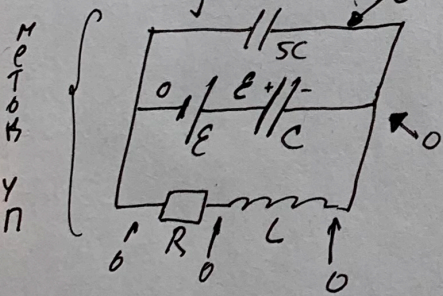 метод УП
5C
0 ε + -
ε C
0
R L
0 0 0